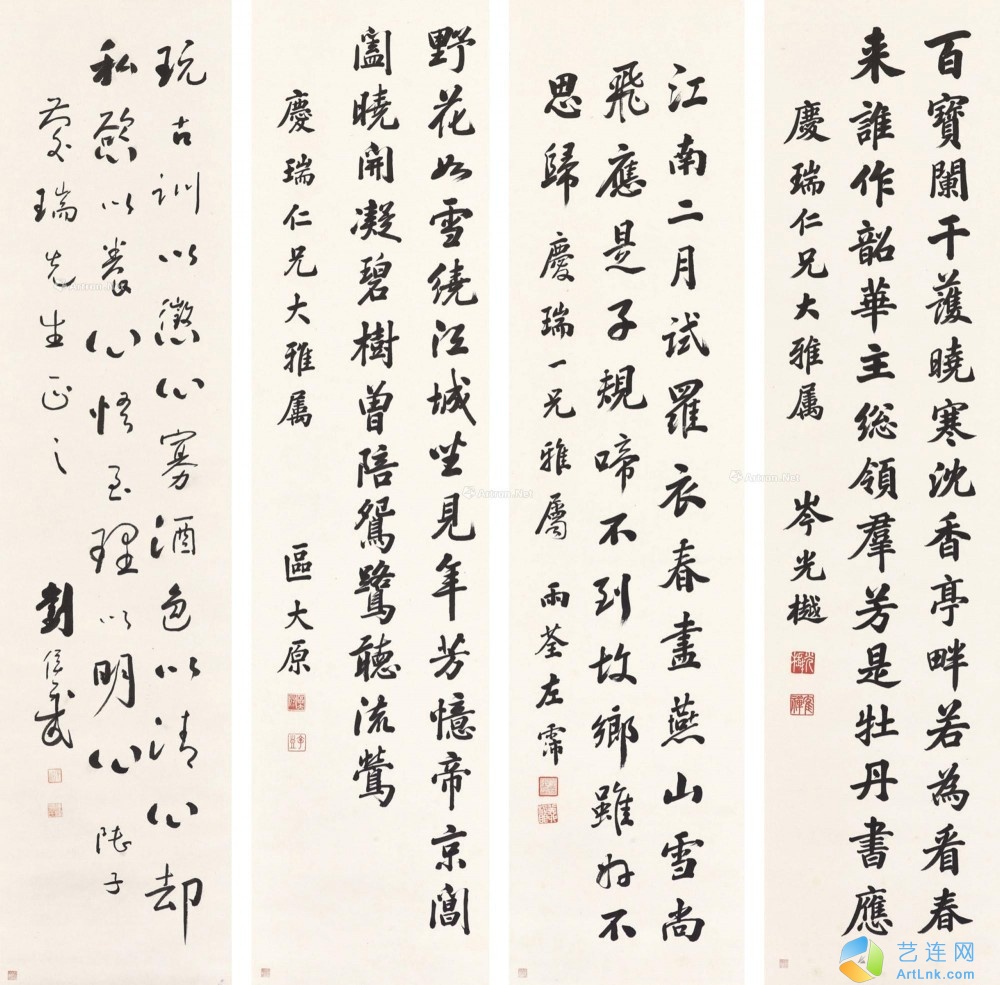 百寶闌干護曉寒沈香亭畔若為看春
来誰作韶華主総領羣芳是牡丹書應
慶瑞仁兄大雅属 岑光樾
江南二月試羅衣春盡燕山雪尚
飛應是子規啼不到故鄉雖好不
思歸 慶瑞一兄雅屬 雨荃左霈
野花如雪繞江城坐見年芳憶帝京閶
闔曉開凝碧樹曾陪鴛鷺聽流鶯
慶瑞仁兄大雅属 區大原
玩古訓以懲心寡酒色以清心却
私慾以養心悟至理以明心 陸子
慶瑞先生正之 劉侯武
Artron.Net
Artron.Net
Artron.Net
艺连网
ArtLnk.com